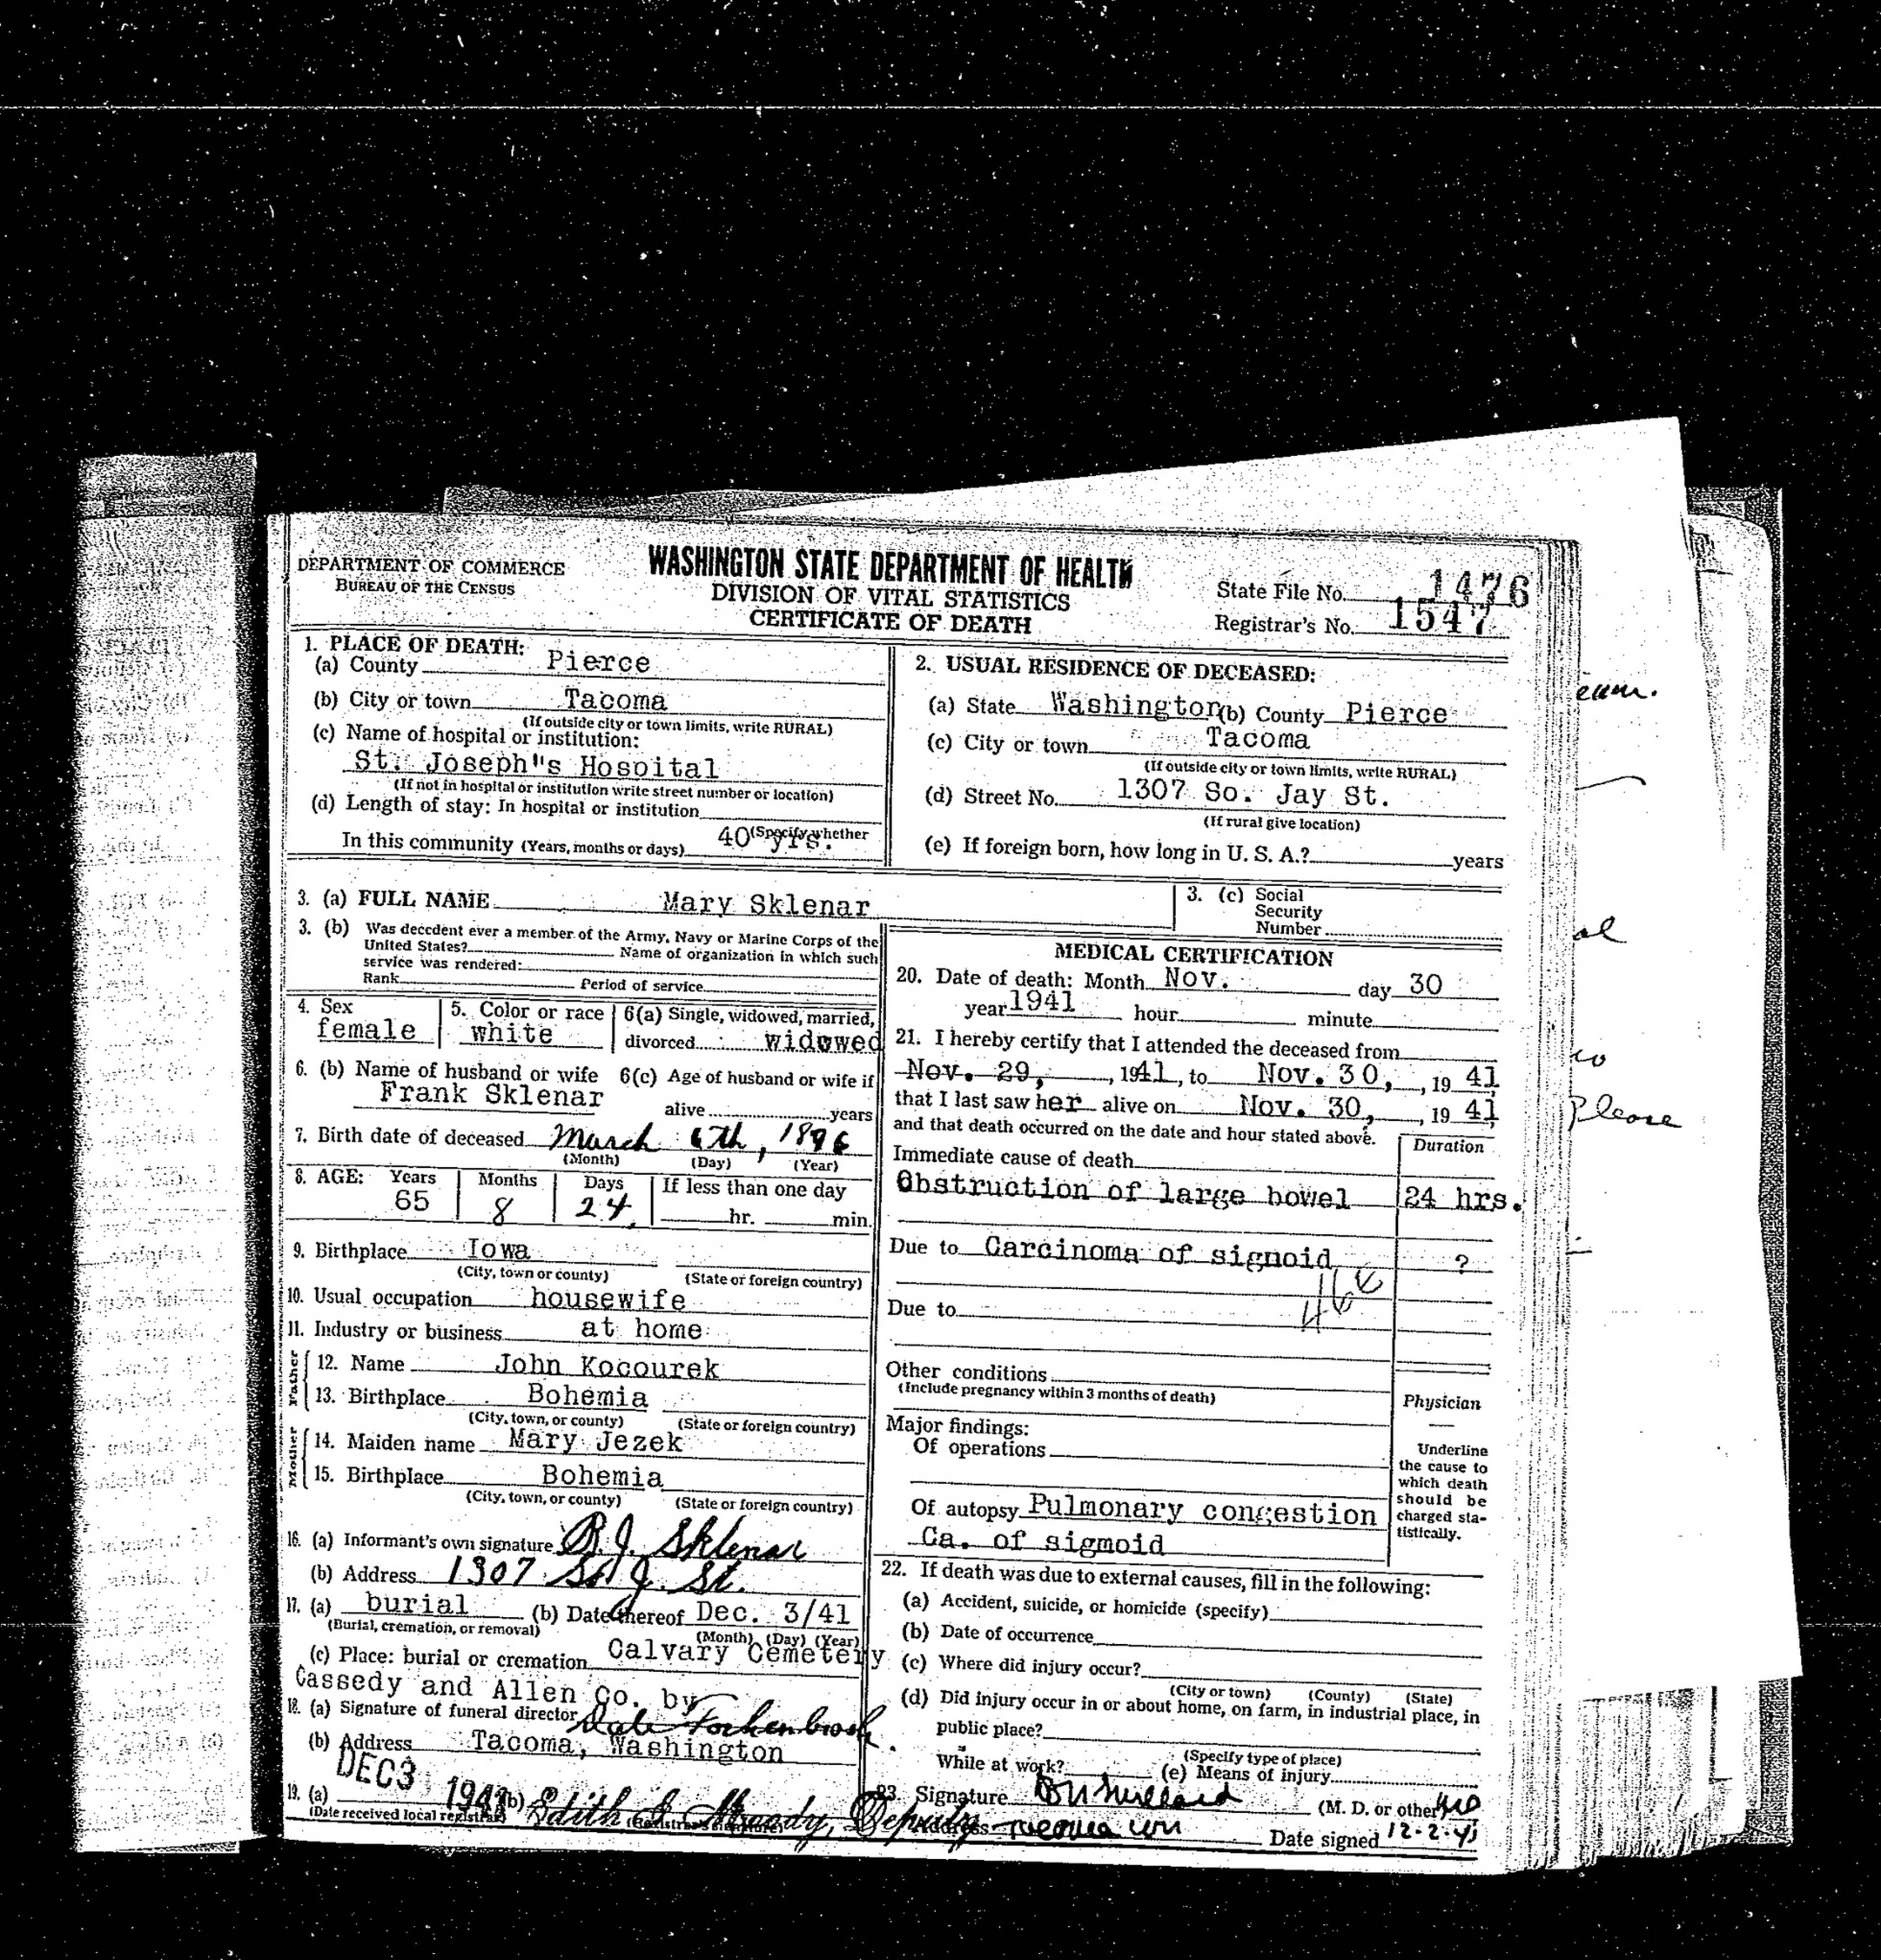 DEPARTMENT OF COMMERCE
BUREAU OF THE CENSUS
WASHINGTON STATE DEPARTMENT OF HEALTH
DIVISION OF VITAL STATISTICS
CERTIFICATE OF DEATH
State File No. 1476
Registrar's No. 1547
1. PLACE OF DEATH:
(a) County Pierce
(b) City or town Tacoma
(If outside city or town limits, write RURAL)
(c) Name of hospital or institution:
St. Joseph"s Hospital
(If not in hospital or institution write street number or location)
(d) Length of stay: In hospital or institution
(Specify whether
In this community (Years, months or days) 40 yrs.
2. USUAL RESIDENCE OF DECEASED:
(a) State Washington (b) County Pierce
(c) City or town Tacoma
(If outside city or town limits, write RURAL)
(d) Street No. 1307 So. Jay St.
(If rural give location)
(e) If foreign born, how long in U. S. A.? years
3. (a) FULL NAME Mary Sklenar
3. (c) Social
Security
Number
3. (b) Was decedent ever a member of the Army, Navy or Marine Corps of the
United States? Name of organization in which such
service was rendered:
Rank Period of service
4. Sex
female
5. Color or race
white
6(a) Single, widowed, married,
divorced widowed
6. (b) Name of husband or wife
Frank Sklenar
6(c) Age of husband or wife if
alive years
7. Birth date of deceased March 6th, 1876
(Month) (Day) (Year)
8. AGE: Years Months Days If less than one day
65 8 24 hr. min.
9. Birthplace Iowa
(City, town or county) (State or foreign country)
10. Usual occupation housewife
11. Industry or business at home
Father
12. Name John Kocourek
13. Birthplace Bohemia
(City, town, or county) (State or foreign country)
Mother
14. Maiden name Mary Jezek
15. Birthplace Bohemia
(City, town, or county) (State or foreign country)
16. (a) Informant's own signature R. J. Sklenar
(b) Address 1307 So J. St.
17. (a) burial (b) Date thereof Dec. 3/41
(Burial, cremation, or removal) (Month) (Day) (Year)
(c) Place: burial or cremation Calvary Cemetery
Cassedy and Allen Co. by
18. (a) Signature of funeral director Dale
(b) Address Tacoma, Washington
DEC 3 1941
19. (a) (b) Edith G. Moody, Deputy
(Date received local registrar) (Registrar's signature)
MEDICAL CERTIFICATION
20. Date of death: Month Nov. day 30
year 1941 hour minute
21. I hereby certify that I attended the deceased from
Nov. 29, , 1941, to Nov. 30, , 19 41
that I last saw her alive on Nov. 30, , 19 41
and that death occurred on the date and hour stated above.
Duration
Immediate cause of death
Obstruction of large bowel 24 hrs.
Due to Carcinoma of signoid ?
46e
Due to
Other conditions
(Include pregnancy within 3 months of death)
Major findings:
Of operations
Of autopsy Pulmonary congestion
Ca. of sigmoid
Physician
Underline
the cause to
which death
should be
charged sta-
tistically.
22. If death was due to external causes, fill in the following:
(a) Accident, suicide, or homicide (specify)
(b) Date of occurrence
(c) Where did injury occur?
(City or town) (County) (State)
(d) Did injury occur in or about home, on farm, in industrial place, in
public place?
(Specify type of place)
While at work? (e) Means of injury
23. Signature (M. D. or other) MD
Address Tacoma Wn Date signed 12-2-41
Please